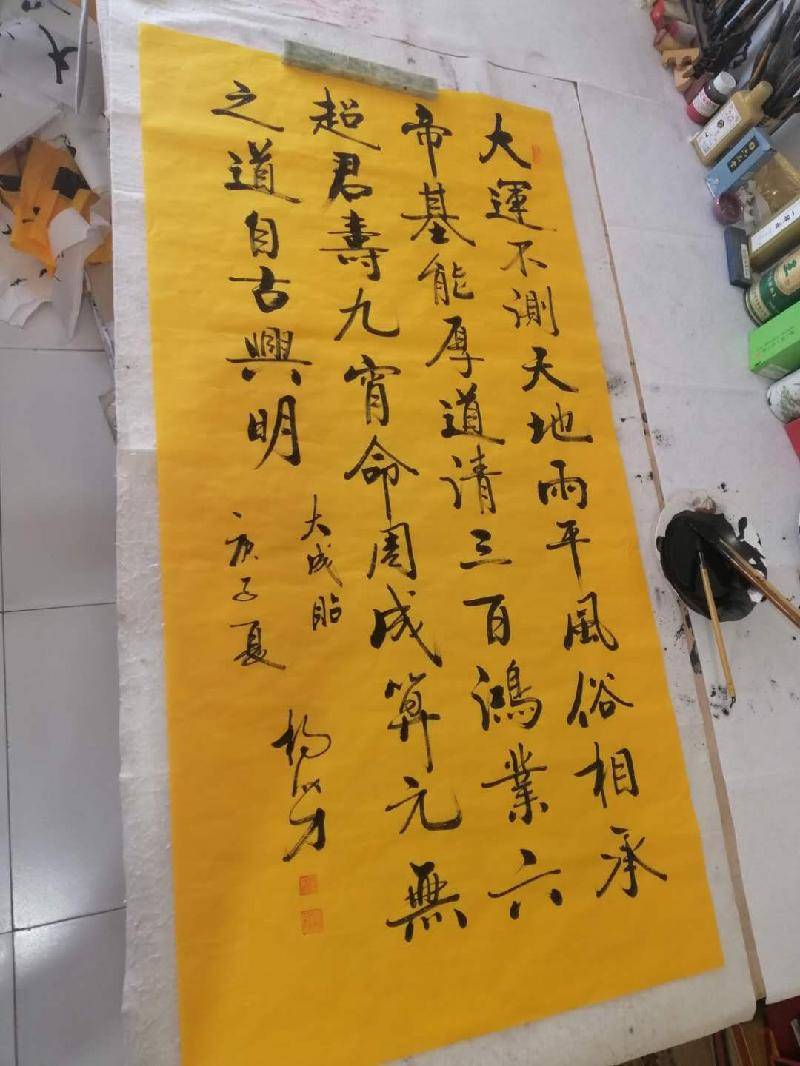 大運不測天地雨平風俗相承
帝基能厚道清三百鴻業六
超君壽九宵命周成算元無
之道自古興明
大成貼
庚子夏